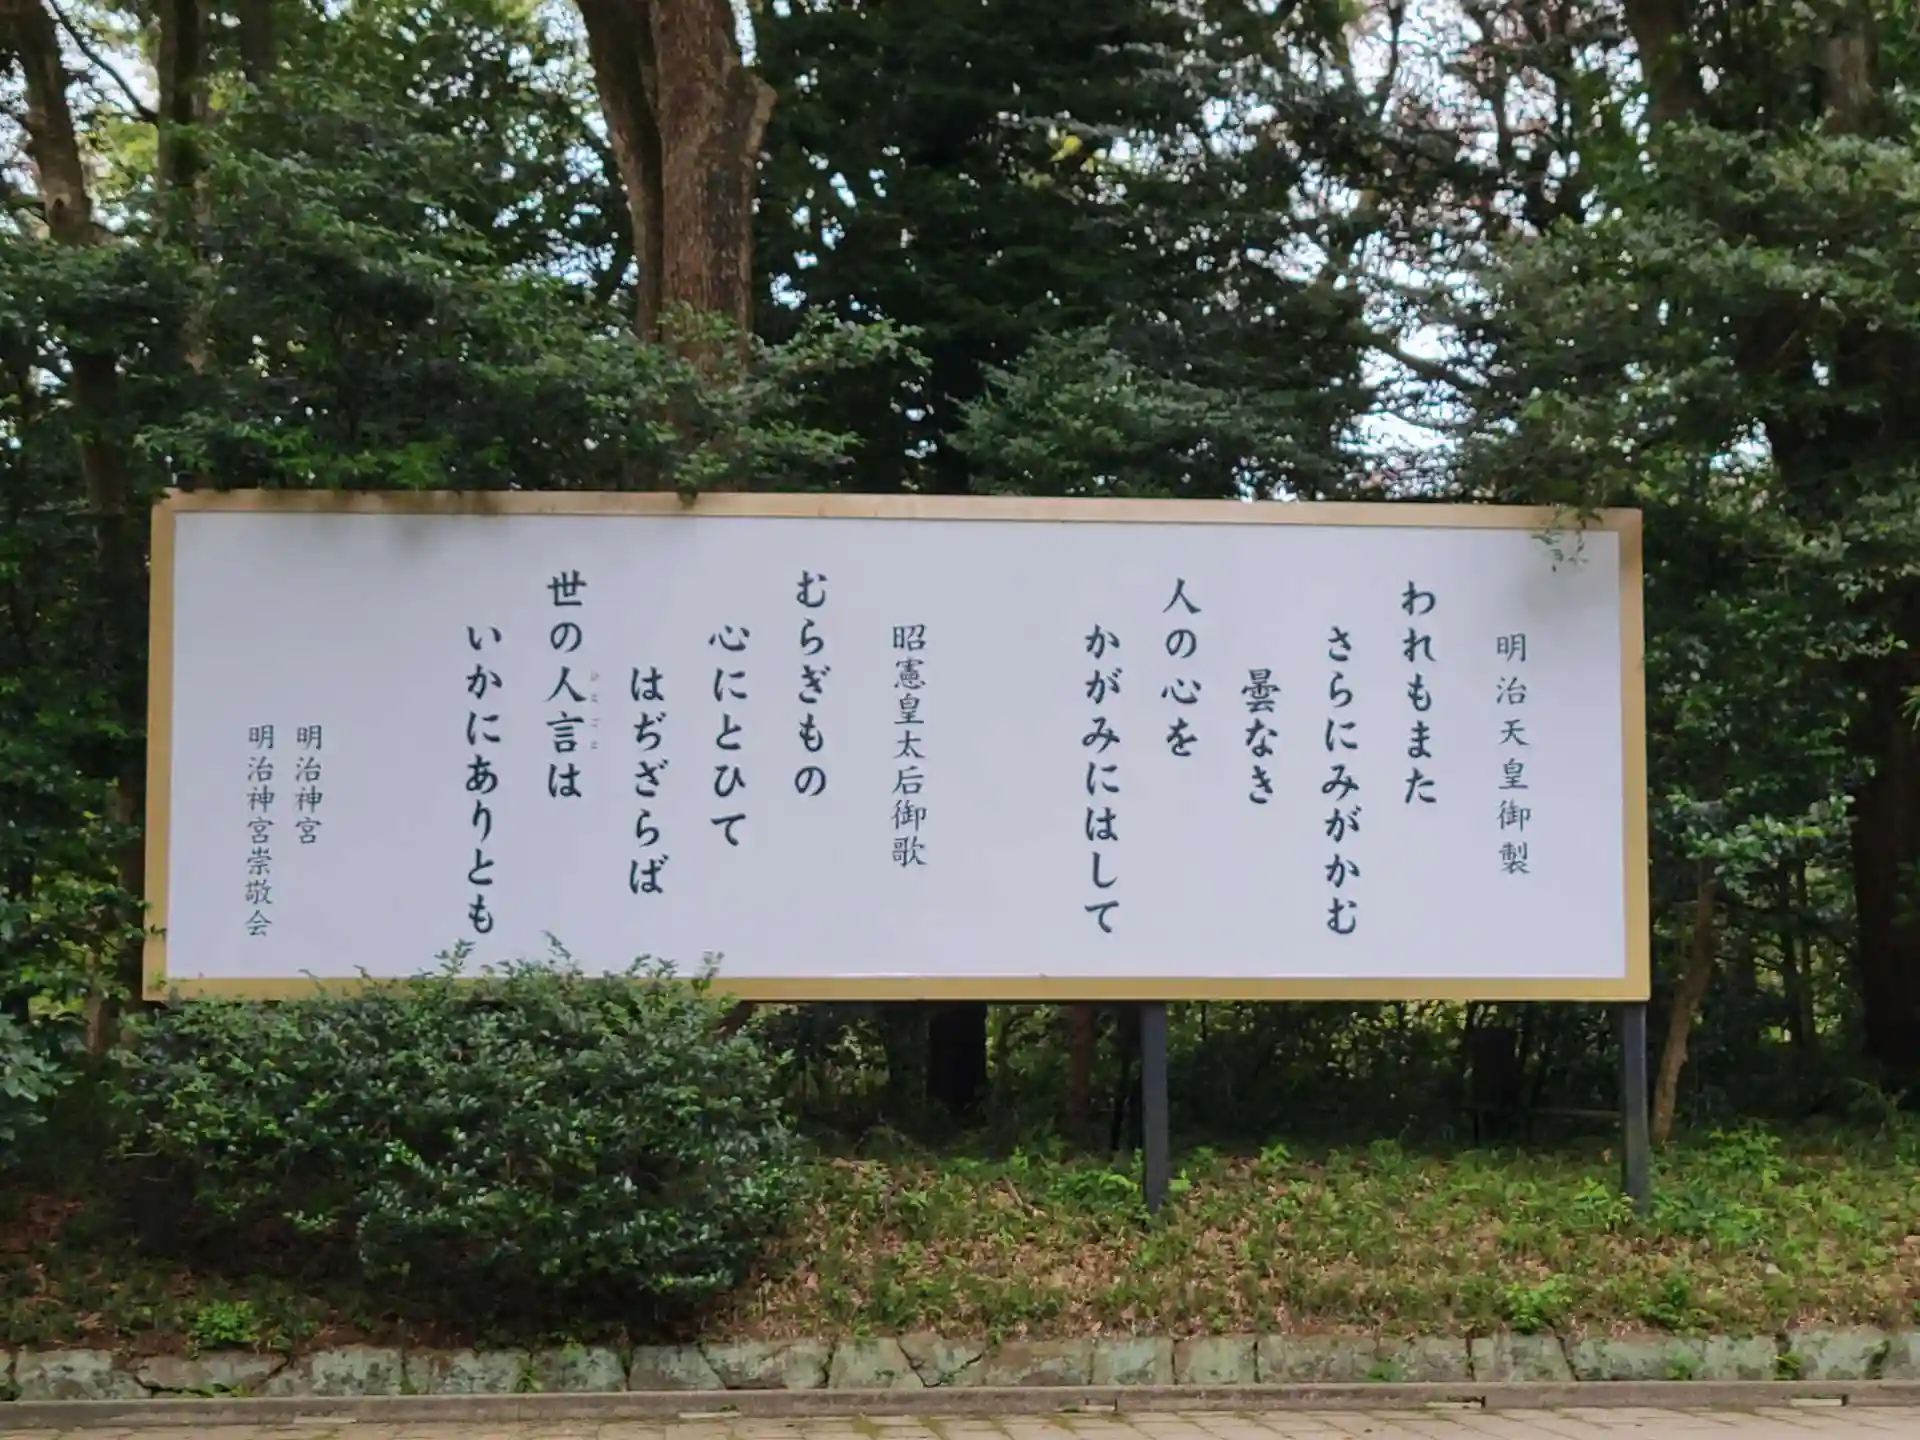 明治天皇御製
われもまた
さらにみがかむ
曇なき
人の心を
かがみにはして
昭憲皇太后御歌
むらぎもの
心にとひて
はぢざらば
世の人言は
ひとごと
いかにありとも
明治神宮
明治神宮崇敬会